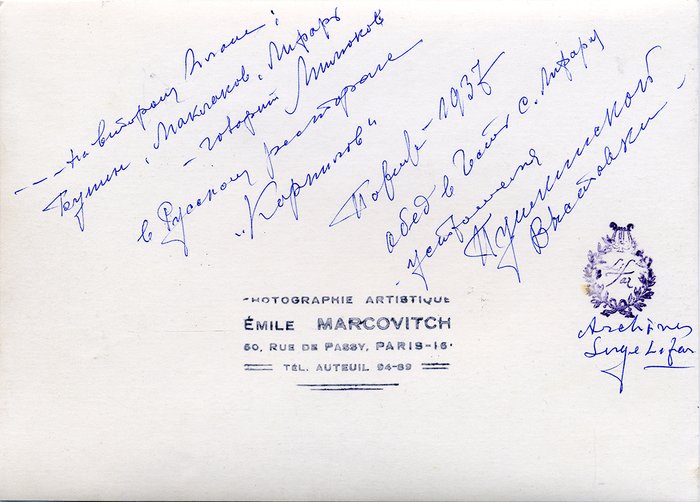 - - - На втором плане:
Бунин, Маклаков, Лифарь
- говорит Милюков
в Русском ресторане
„Корнилов“
Париж - 1937
обед в честь С. Лифаря
устроителя
Пушкинской
Выставки -
PHOTOGRAPHIE ARTISTIQUE
ÉMILE MARCOVITCH
60, RUE DE PASSY, PARIS-16e
TÉL. AUTEUIL 94-89
Lifar
Archives
Serge Lifar